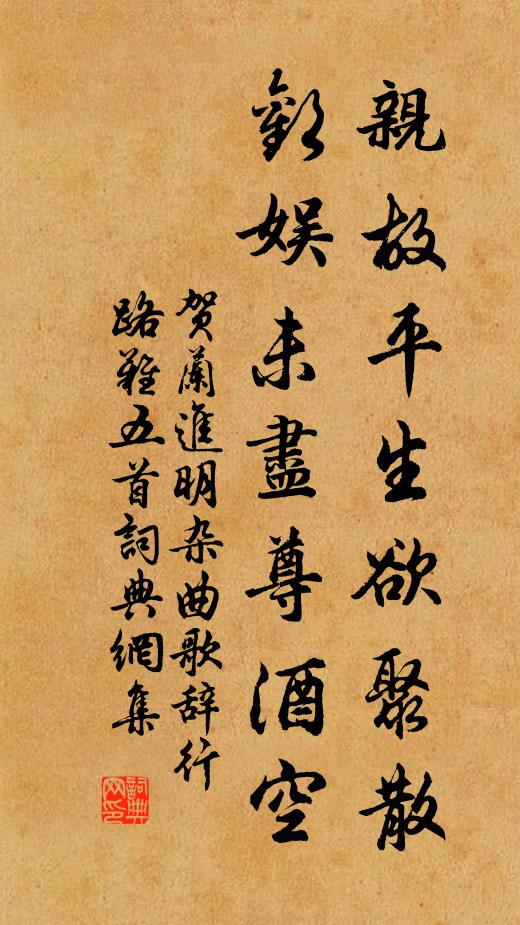 親故平生欲聚散
歡娛未盡尊酒空
贺蘭進明杂曲歌辞行
路難五首詞典網集
詞典网印